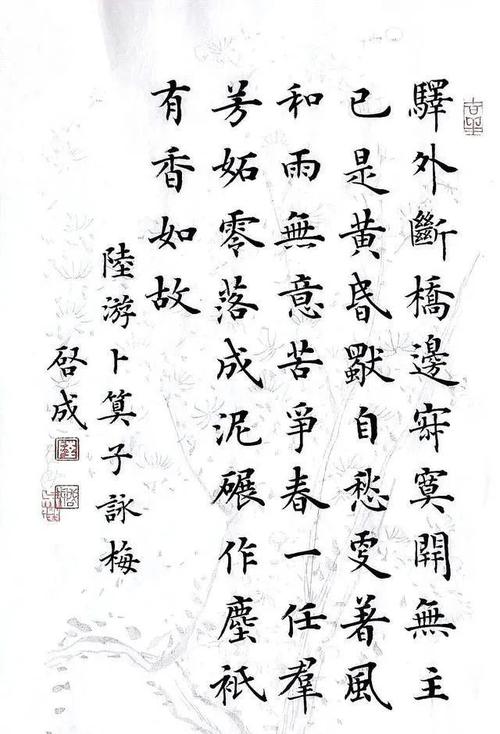 驛外斷橋邊寂寞開無主
已是黃昏獨自愁更著風
和雨無意苦爭春一任羣
芳妬零落成泥碾作塵衹
有香如故
陸游卜算子詠梅
啓成